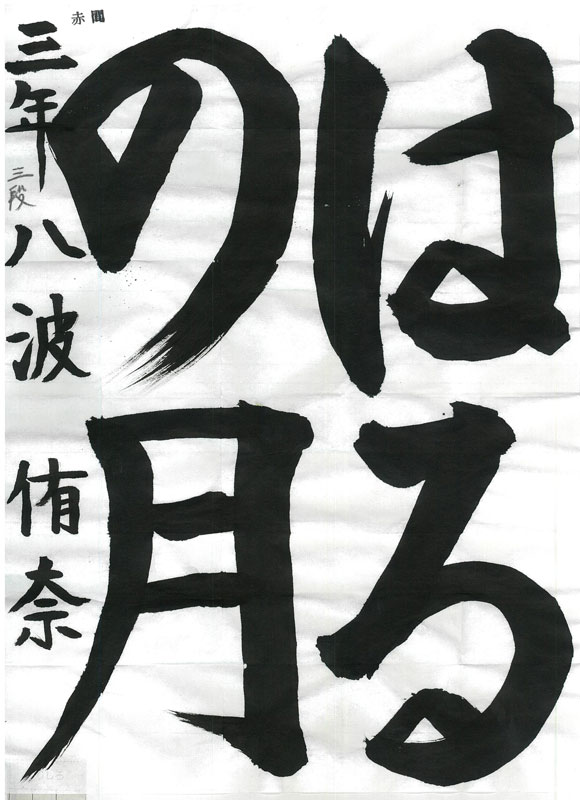 はる
の月
三年 八波 侑奈
三段
赤間